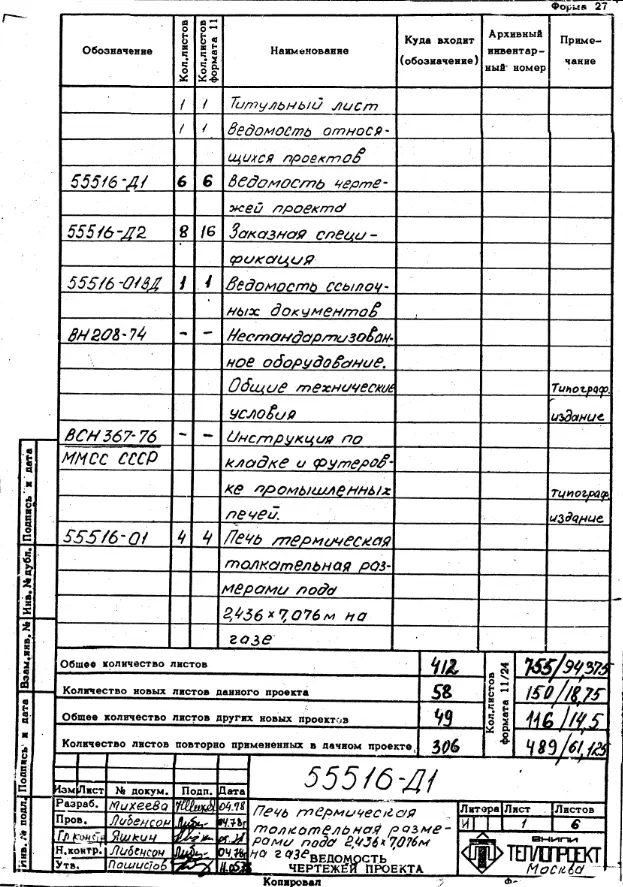 Форма 27
Обозначение Кол.листов Кол.листов формата 11 Наименование Куда входит (обозначение) Архивный инвентарный номер Примечание
1 1 Титульный лист
1 1 Ведомость относя-
щихся проектов
55516-Д1 6 6 Ведомость черте-
жей проекта
55516-Д2 8 16 Заказная специ-
фикация
55516-01ВД 1 1 Ведомость ссылоч-
ных документов
ВН 208-74 - - Нестандартизован-
ное оборудование.
Общие технические Типограф.
условия издание
ВСН 367-76 - - Инструкция по
ММСС СССР кладке и футеров-
ке промышленных типограф.
печей. издание
55516-01 4 4 Печь термическая
толкательная раз-
мерами пода
2,436×7,076м на
газе
Общее количество листов 412 755/94,375
Количество новых листов данного проекта 58 150/18,75
Общее количество листов других новых проектов 49 116/14,5
Количество листов повторно примененных в данном проекте 306 489/61,125
Кол.листов формата 11/24
Инв.№ подл. Подпись и дата Взам.инв.№ Инв.№дубл. Подпись и дата
55516-Д1
Изм Лист № докум. Подп. Дата
Разраб. Михеева 04.78
Пров. Либенсон 04.78г
Гл.констр Яшкич
Н.контр. Либенсон 04.78г
Утв.
Печь термическая
толкательная разме-
рами пода 2,436×7,076м
на газе
ВЕДОМОСТЬ
ЧЕРТЕЖЕЙ ПРОЕКТА
Литера Лист Листов
И 1 6
ВНИПИ
ТЕПЛОПРОЕКТ
Москва
Копировал